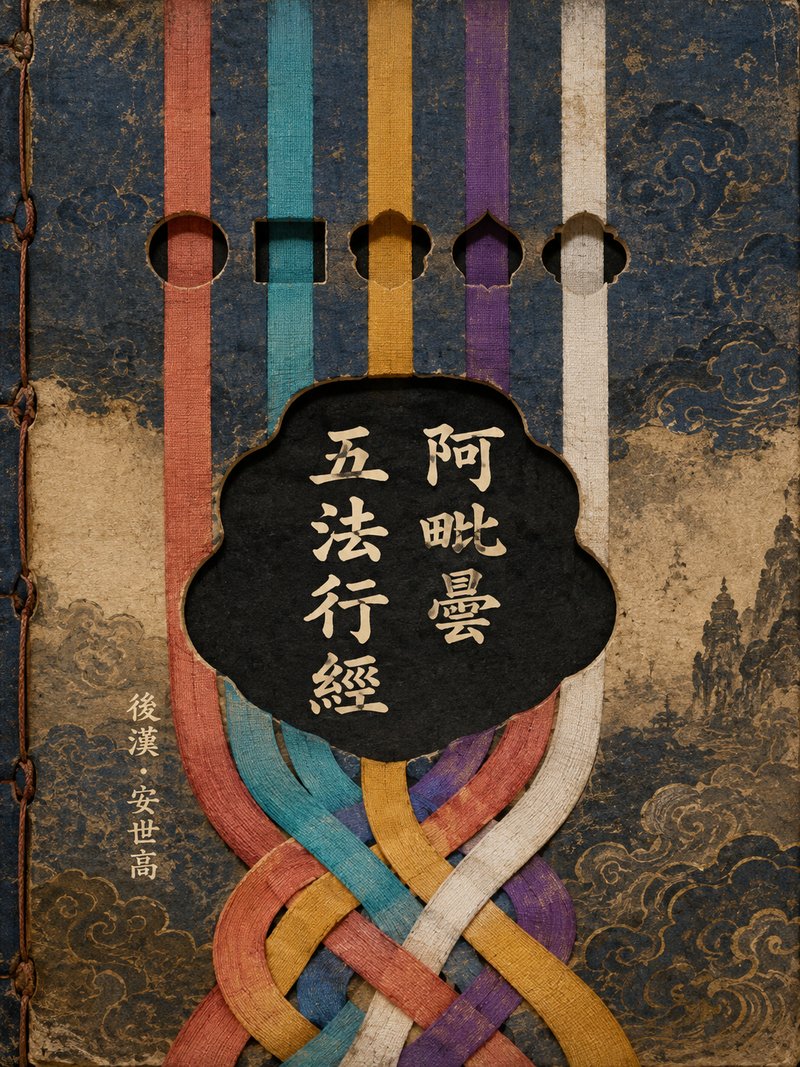 阿毗曇
五法行經
後漢・安世高